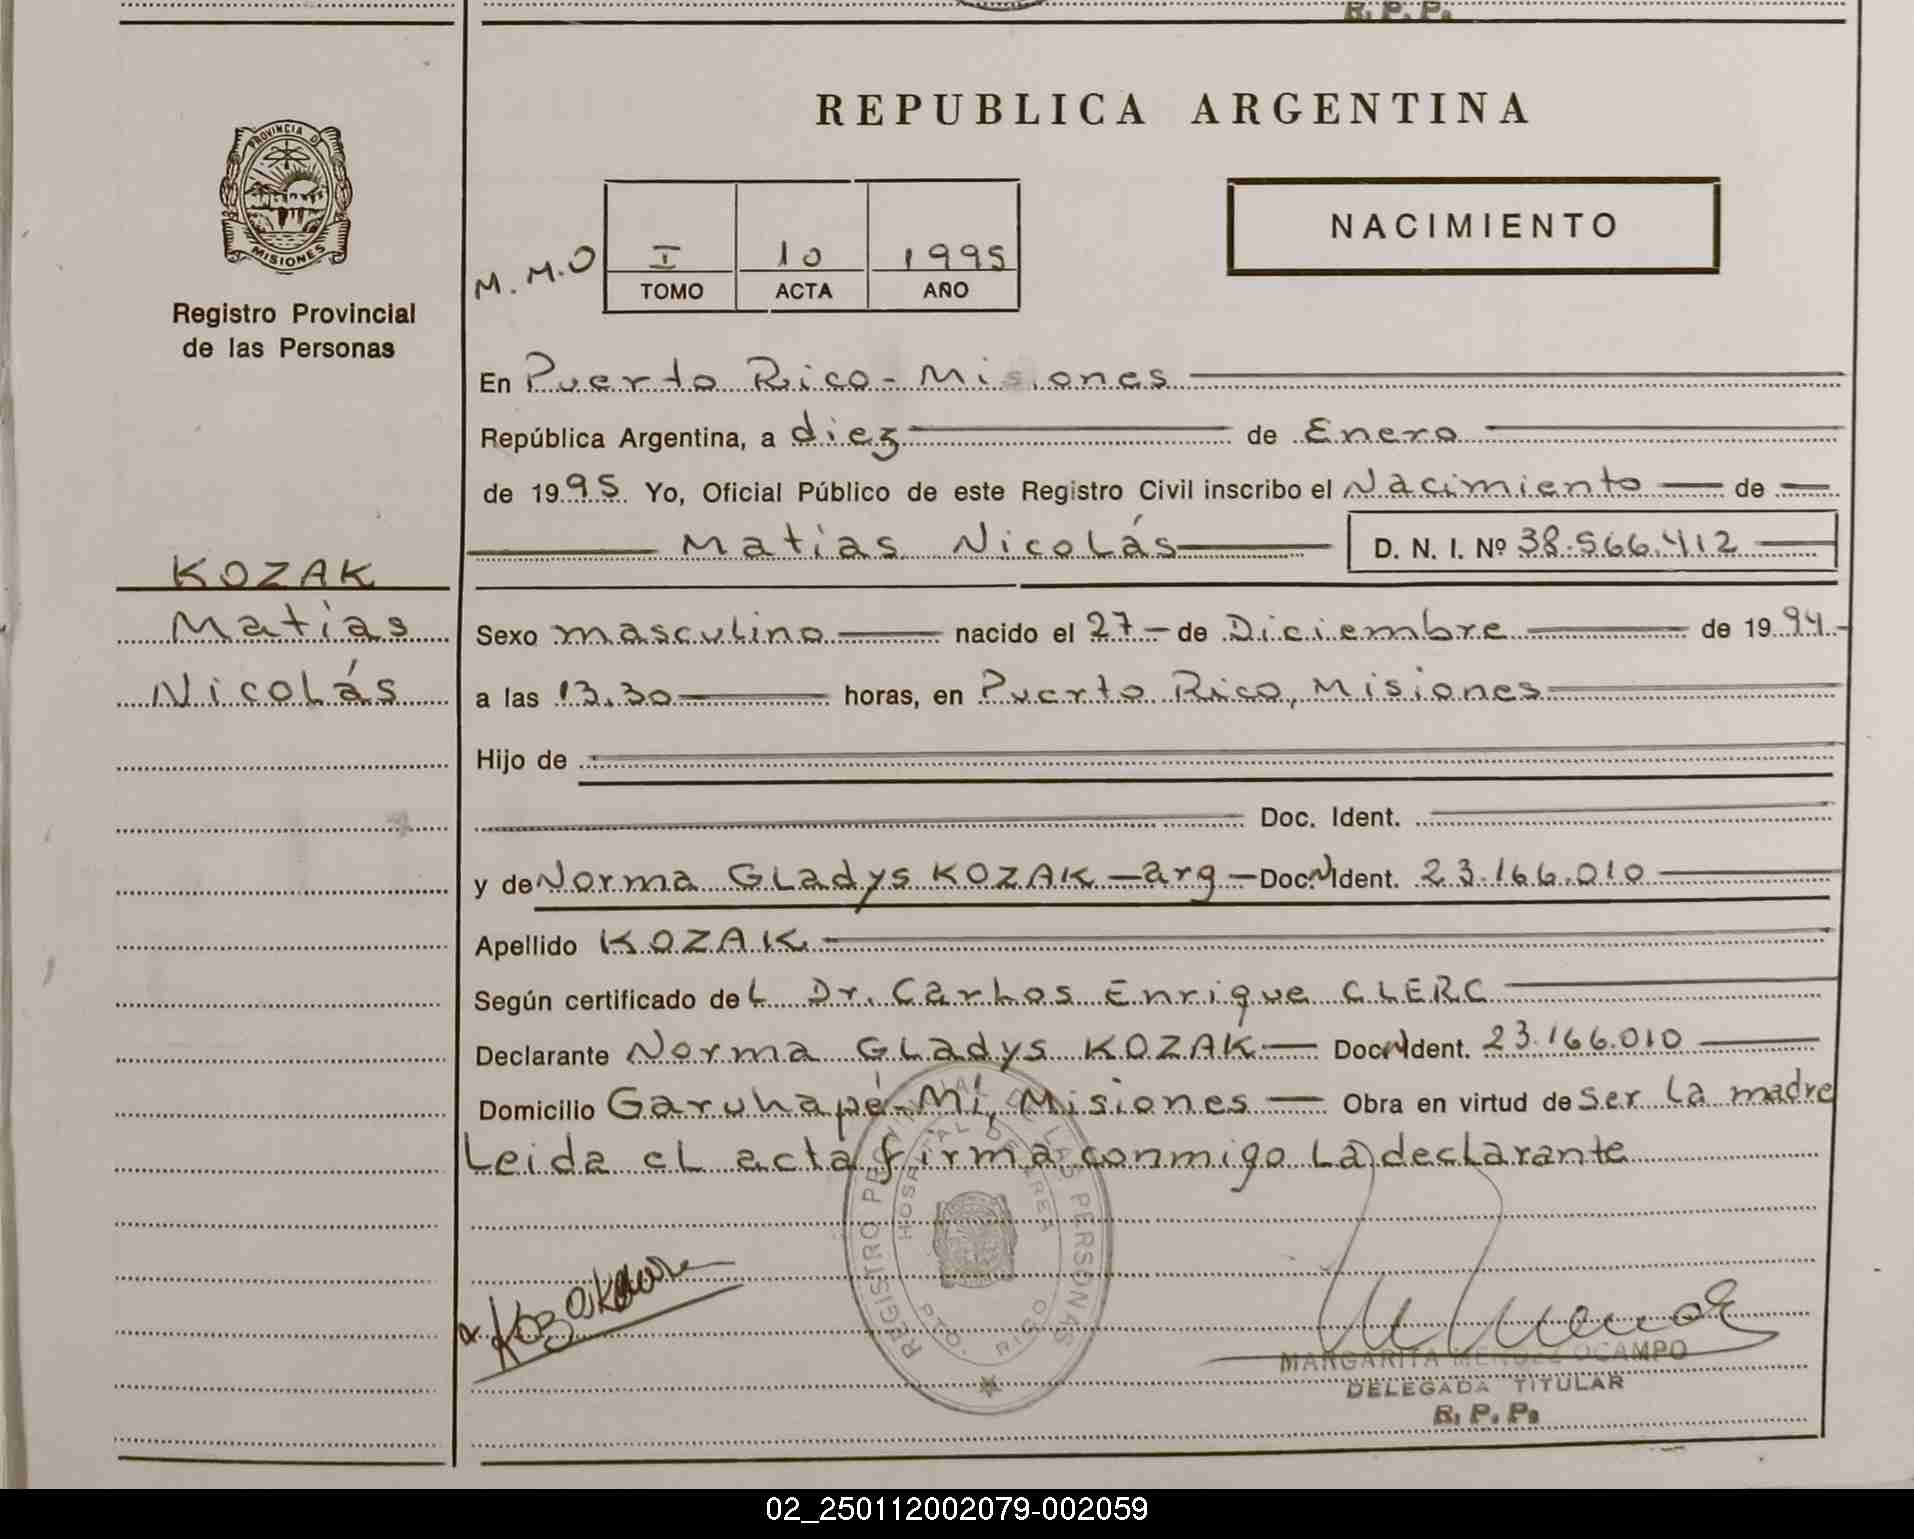 R. P. P.
REPUBLICA ARGENTINA
PROVINCIA D
MISIONES
Registro Provincial
de las Personas
NACIMIENTO
M. M. O
I 10 1995
TOMO ACTA AÑO
En Puerto Rico - Misiones
República Argentina, a diez de Enero
de 1995. Yo, Oficial Público de este Registro Civil inscribo el Nacimiento de
Matias Nicolás D. N. I. Nº 38.566.412
KOZAK
Matías
Nicolás
Sexo masculino nacido el 27 - de Diciembre de 1994 -
a las 13.30 horas, en Puerto Rico, Misiones
Hijo de
Doc. Ident.
y de Norma Gladys KOZAK - arg - Doc. N Ident. 23.166.010
Apellido KOZAK
Según certificado del Dr. Carlos Enrique CLERC
Declarante Norma Gladys KOZAK Doc. N Ident. 23.166.010
Domicilio Garuhapé-Mí, Misiones Obra en virtud de ser la madre
Leida el acta firma conmigo la declarante
REGISTRO PERSONAS
HOSPITAL DE AREA
MARGARITA MENDEZ OCAMPO
DELEGADA TITULAR
R. P. P.
02_250112002079-002059